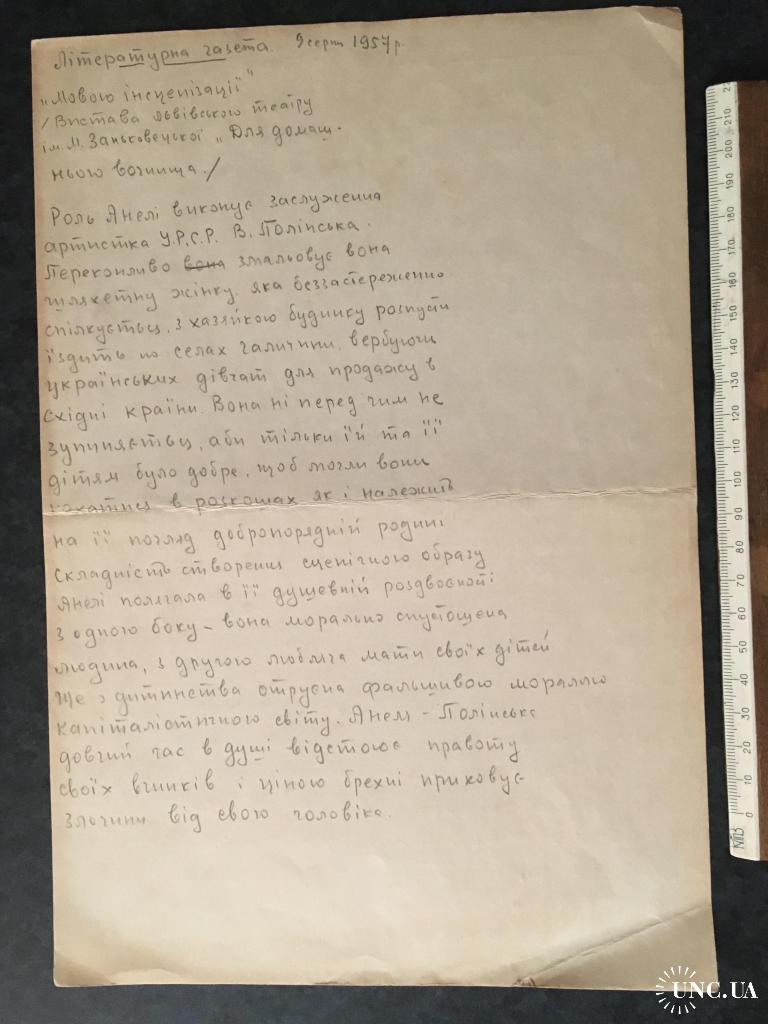 Літературна газета. 9 серп 1957 р.
„Мовою інсценізації"
/Вистава львівського театру
ім. М. Заньковецької „Для домаш-
нього вогнища./
Роль Анелі виконує заслуженна
артистка У.Р.С.Р. В. Полінська.
Переконливо вона змальовує вона
шляхетну жінку, яка беззастережно
спілкується, з хазяйкою будинку розпусти
їздить по селах галичини, вербуючи
українських дівчат для продажу в
східні країни. Вона ні перед чим не
зупиняється, аби тільки їй та її
дітям було добре, щоб могли вони
кохатися в розкошах як і належить
на її погляд добропорядній родині
Складність створення сценічного образу
Анелі полягала в її душевній роздвоєності
з одного боку – вона морально спустошена
людина, з другого любляча мати своїх дітей
Ще з дитинства отруєна фальшивою мораллю
капіталістичного світу. Анеля – Полінська
довгий час в душі відстоює правоту
своїх вчинків і ціною брехні приховує
злочини від свого чоловіка.
0 10 20 30 40 50 60 70 80 90 100 110 120 130 140 150 160 170 180 190 200 210
UNC.UA